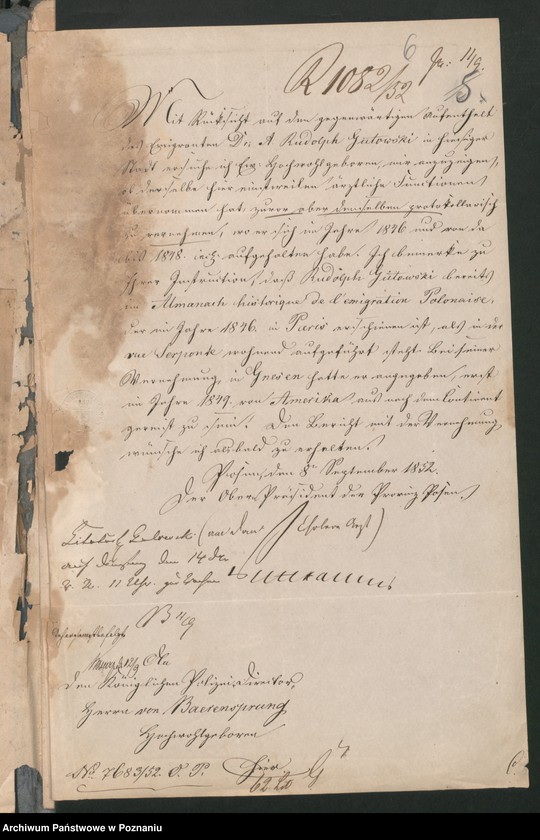 6
R 1082/52
pr. 11/9.
Mit Rücksicht auf den gegenwärtigen Aufenthalt
des Emigranten Dr. A Rudolph Gutowski in hiesiger
Stadt ersuche ich Ew: Hochwohlgeboren, mir anzuzeigen,
ob derselbe hier einstweilen ärztliche Functionen
übernommen hat, zuvor aber denselben protokollarisch
zu vernehmen, wo er sich im Jahre 1846 und von da
bis 1848 sich aufgehalten habe. Ich bemerke zu
Ihrer Instruktion, daß Rudolph Gutowski bereits
im Almanach historique de l'émigration Polonaise,
der im Jahre 1846. in Paris erschienen ist, als in der
rue Serpente wohnend aufgeführt steht. Bei seiner
Vernehmung in Gnesen hatte er angegeben, erst
im Jahre 1849. von Amerika aus nach dem Continent
gereist zu sein. Den Bericht mit der Vernehmung
wünsche ich alsbald zu erhalten.
Posen, den 8. September 1852.
Der Ober-Präsident der Provinz Posen
(an den Cholera Arzt)
auf den 14 d.
11 Uhr.
B 11/9
12/9
den Königlichen Polizei-Director,
Herrn von Baerensprung
Hochwohlgeboren
No 7683/52. O. P.
Hier
Archiwum Państwowe w Poznaniu